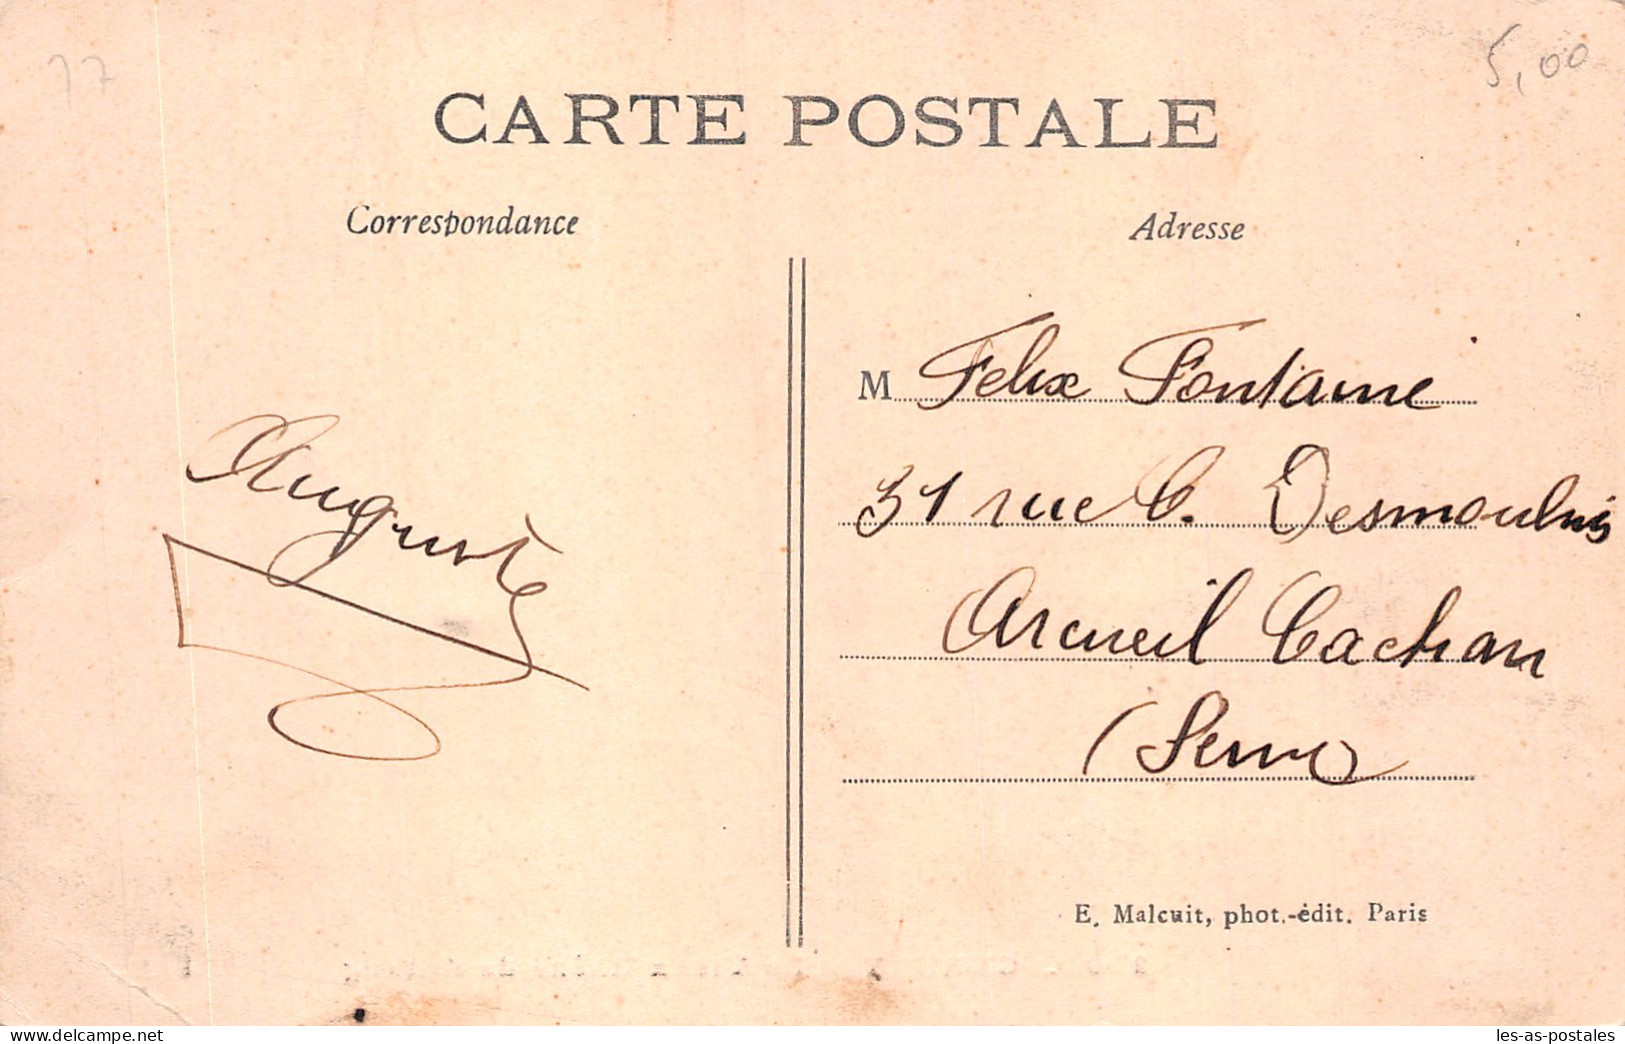 77
5,00
CARTE POSTALE
Correspondance
Adresse
Auguste
M Felix Fontaine
31 rue C. Desmoulins
Arcueil Cachan
(Seine)
E. Malcuit, phot.-édit. Paris
delcampe.net
les-as-postales